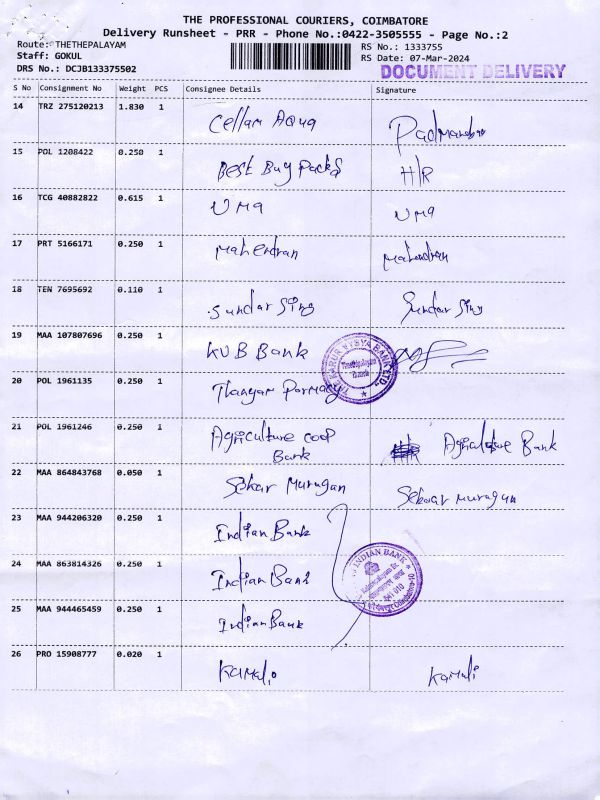 THE PROFESSIONAL COURIERS, COIMBATORE
Delivery Runsheet - PRR - Phone No.:0422-3505555 - Page No.:2
Route: THETHEPALAYAM
RS No.: 1333755
Staff: GOKUL
RS Date: 07-Mar-2024
DRS No.: DCJB133375502
DOCUMENT DELIVERY
S No Consignment No Weight PCS Consignee Details Signature
14 TRZ 275120213 1.830 1 Cellam Aqua Padmanaban
15 POL 1208422 0.250 1 Best Buy Packs H/R
16 TCG 40882822 0.615 1 UMA UMA
17 PRT 5166171 0.250 1 Mahendran Mahendran
18 TEN 7695692 0.110 1 Sundar Sing Sundar Sing
19 MAA 107807696 0.250 1 KVB Bank
THE KARUR VYSYA BANK LTD.
Thethipalayam
Branch
20 POL 1961135 0.250 1 Thangam Parmacy
21 POL 1961246 0.250 1 Agriculture coop Agriculture Bank
Bank
22 MAA 864843768 0.050 1 Sekar Murugan Sekar Murugan
23 MAA 944206320 0.250 1 Indian Bank
24 MAA 863814326 0.250 1 Indian Bank
INDIAN BANK
641 010
25 MAA 944465459 0.250 1 Indian Bank
26 PRO 15908777 0.020 1 Kamali Kamali